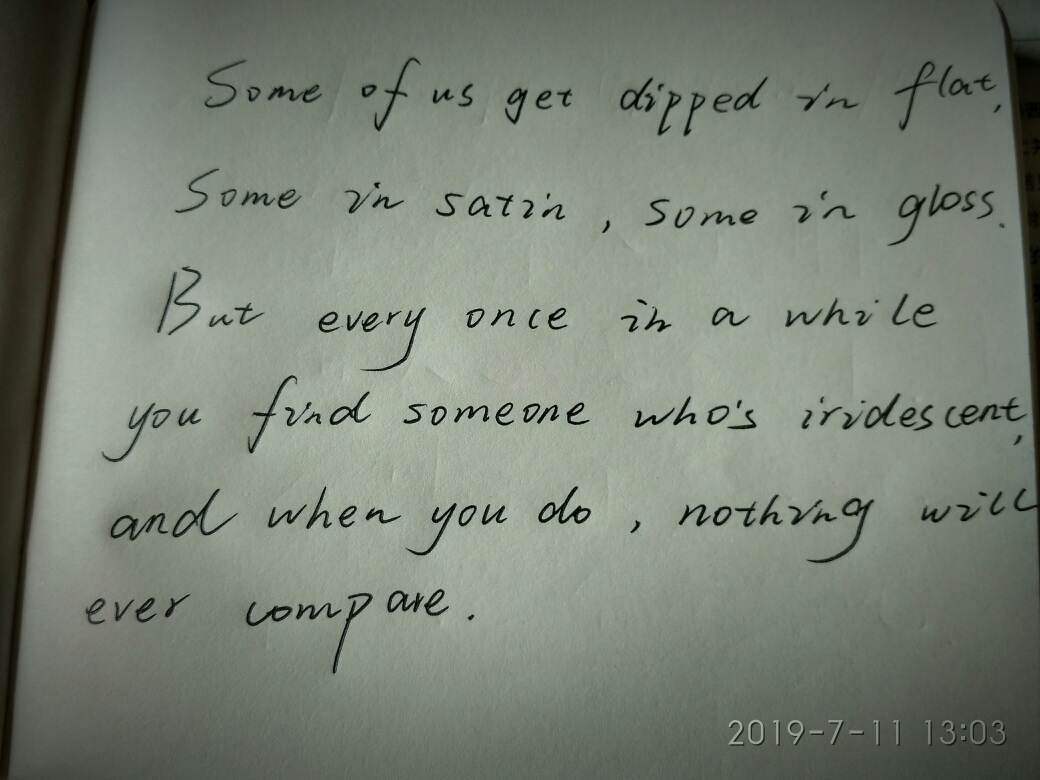 Some of us get dipped in flat,
Some in satin, some in gloss.
But every once in a while
you find someone who's iridescent,
and when you do, nothing will
ever compare.
2019-7-11 13:03